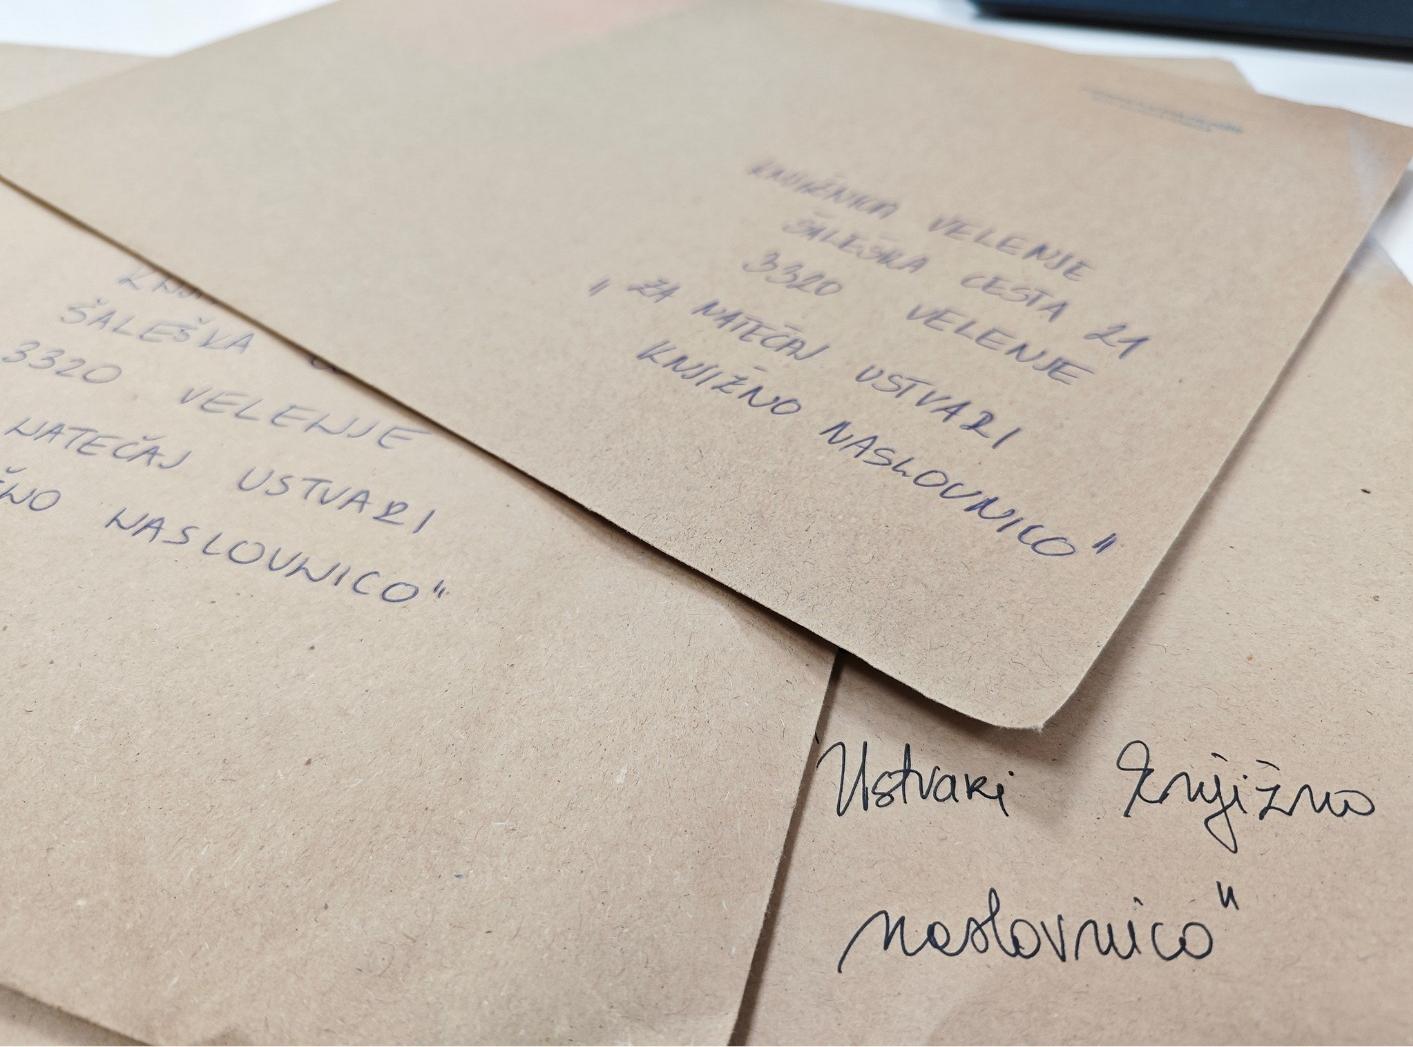 KNJIŽNICA VELENJE
ŠALEŠKA CESTA 21
3320 VELENJE
„ZA NATEČAJ USTVARI
KNJIŽNO NASLOVNICO"
ŠALEŠKA
3320 VELENJE
NATEČAJ USTVARI
NASLOVNICO"
Ustvari knjižno
naslovnico"